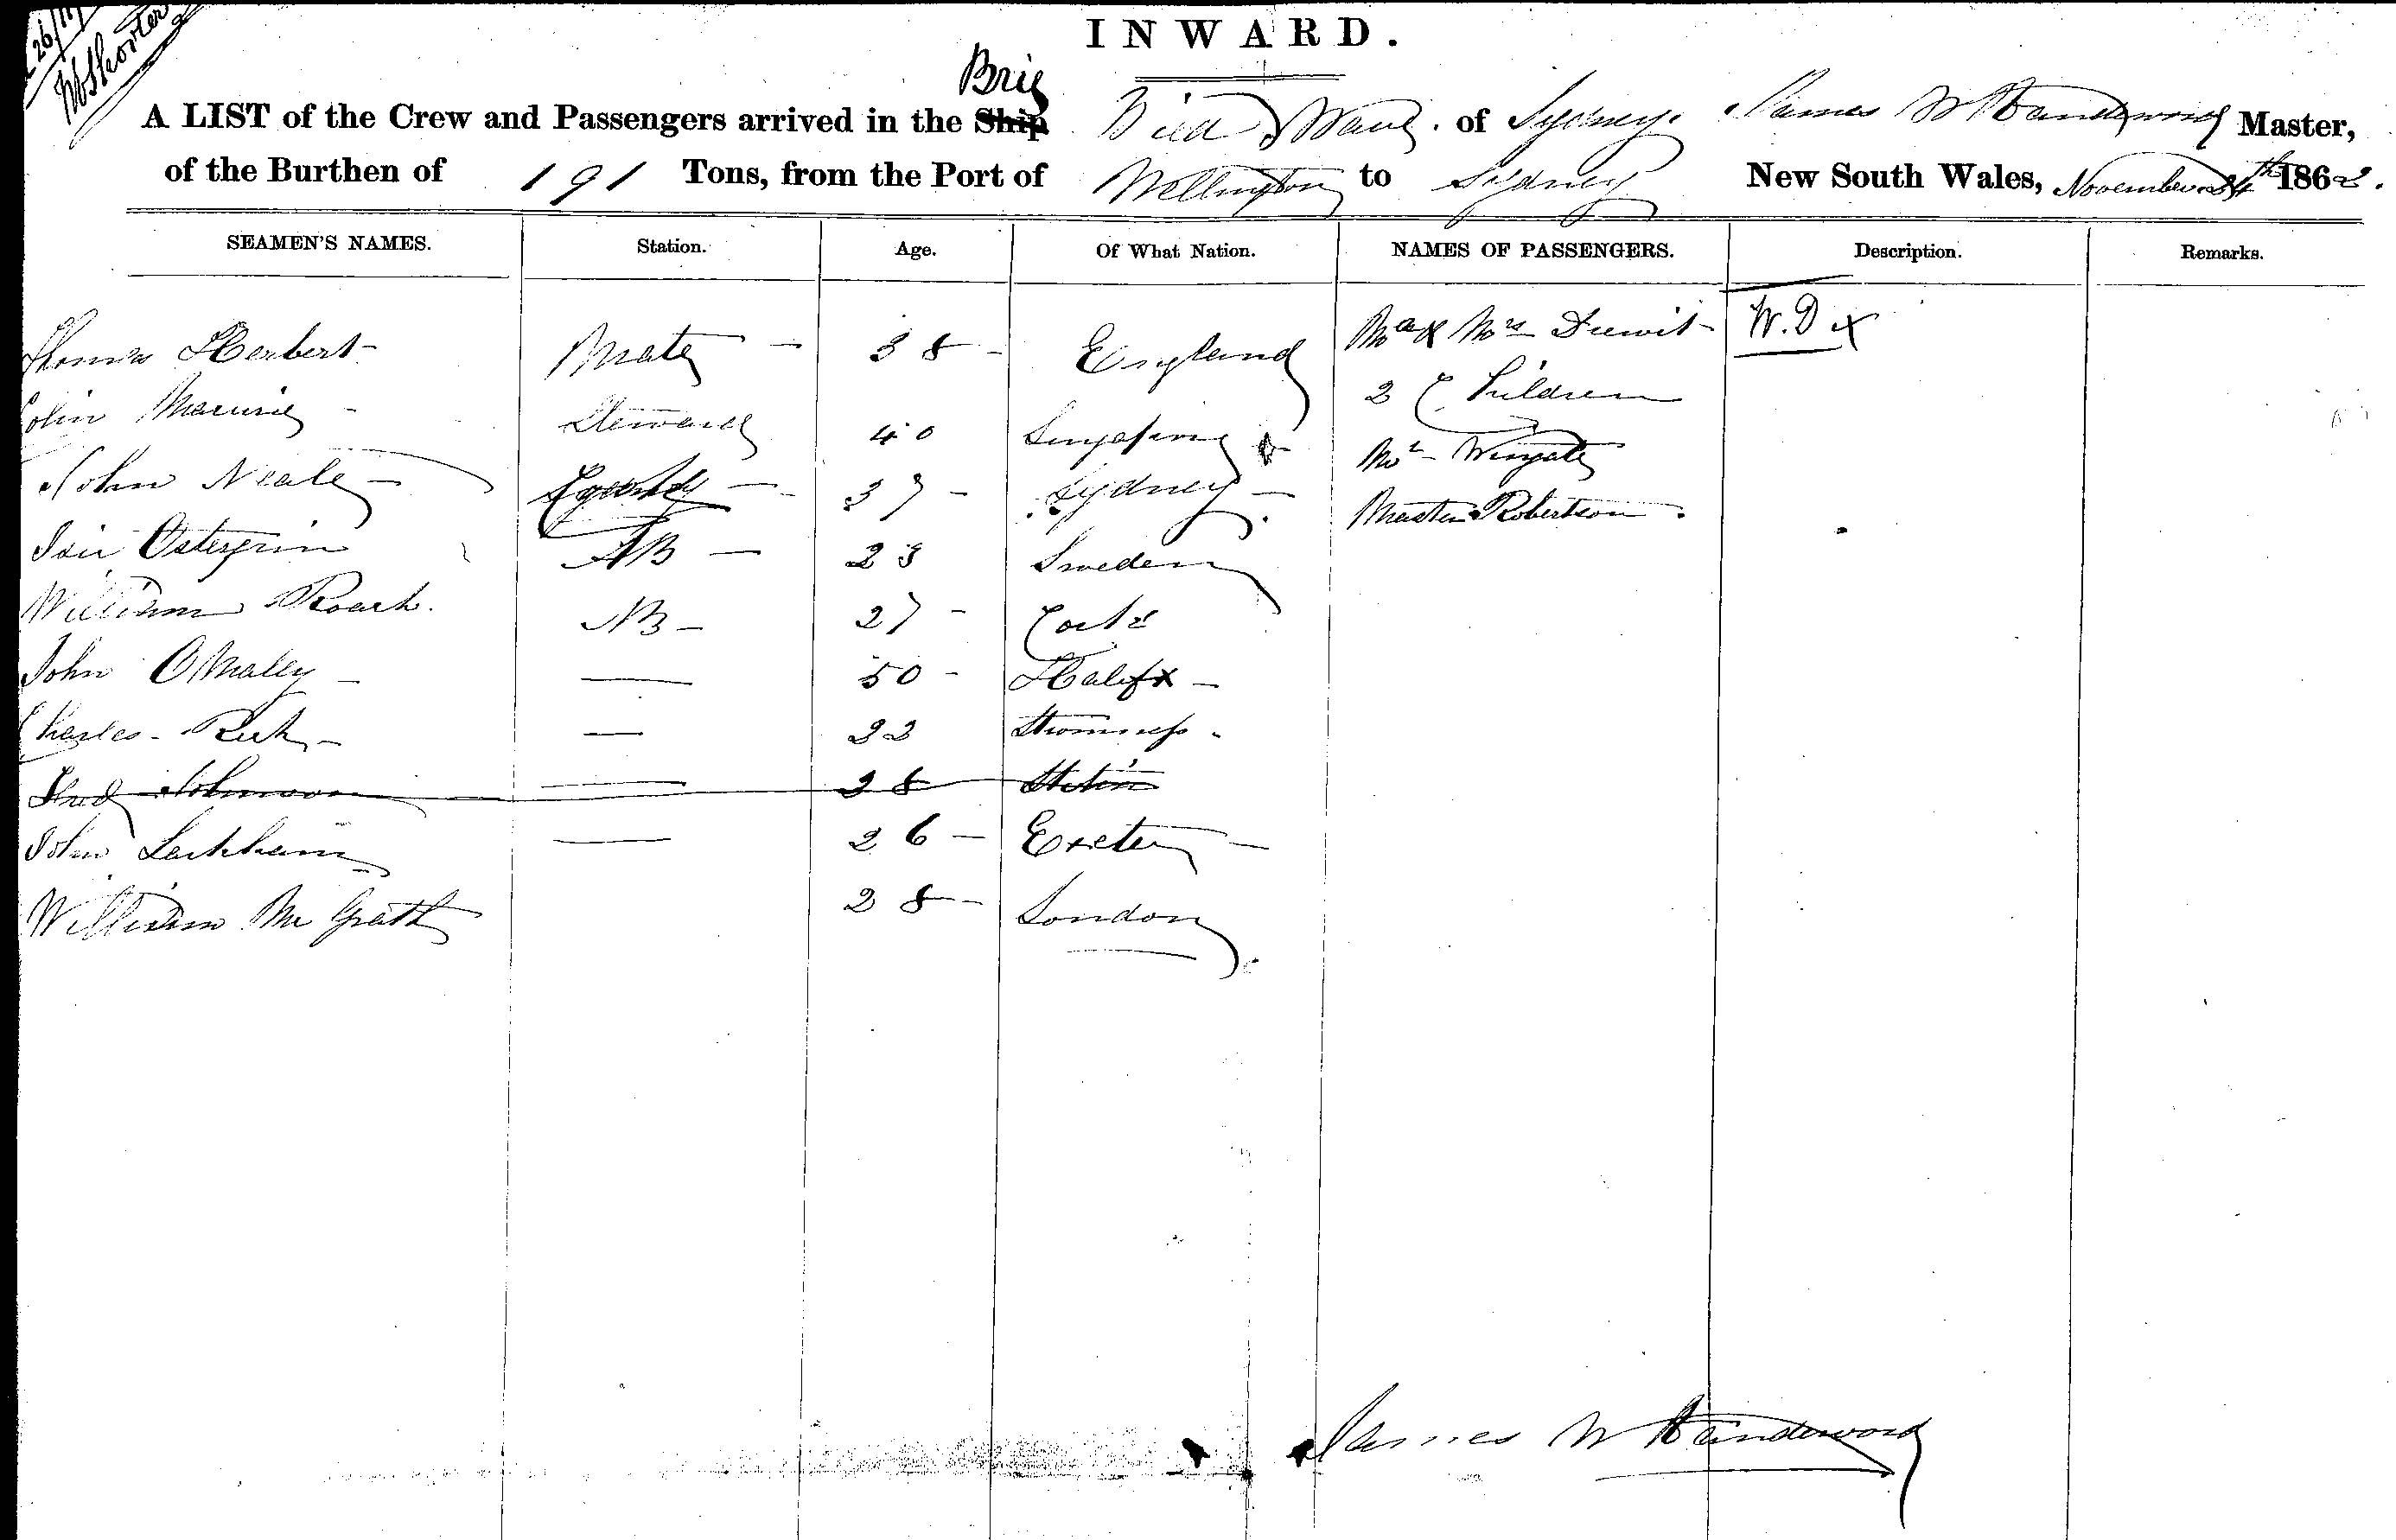 26/11
INWARD.
Brig
A LIST of the Crew and Passengers arrived in the Ship of Sydney. James W Master,
of the Burthen of 191 Tons, from the Port of Wellington to Sydney New South Wales, November 24th 1862.
SEAMEN'S NAMES. Station. Age. Of What Nation. NAMES OF PASSENGERS. Description. Remarks.
Thomas Herbert Mate 38 England Mr & Mrs W.D
Colin Steward 40 Singapore 2 Children
John Neale 37 Sydney Mr Wingate
AB 23 Sweden Master Robertson
William Roach AB 27 Cork
John OMaley — 50 Halifx
Charles — 22 Stromness
Fred Johnson — 28 Stetin
John — 26 Exeter
William Mc Grath 28 London
James W